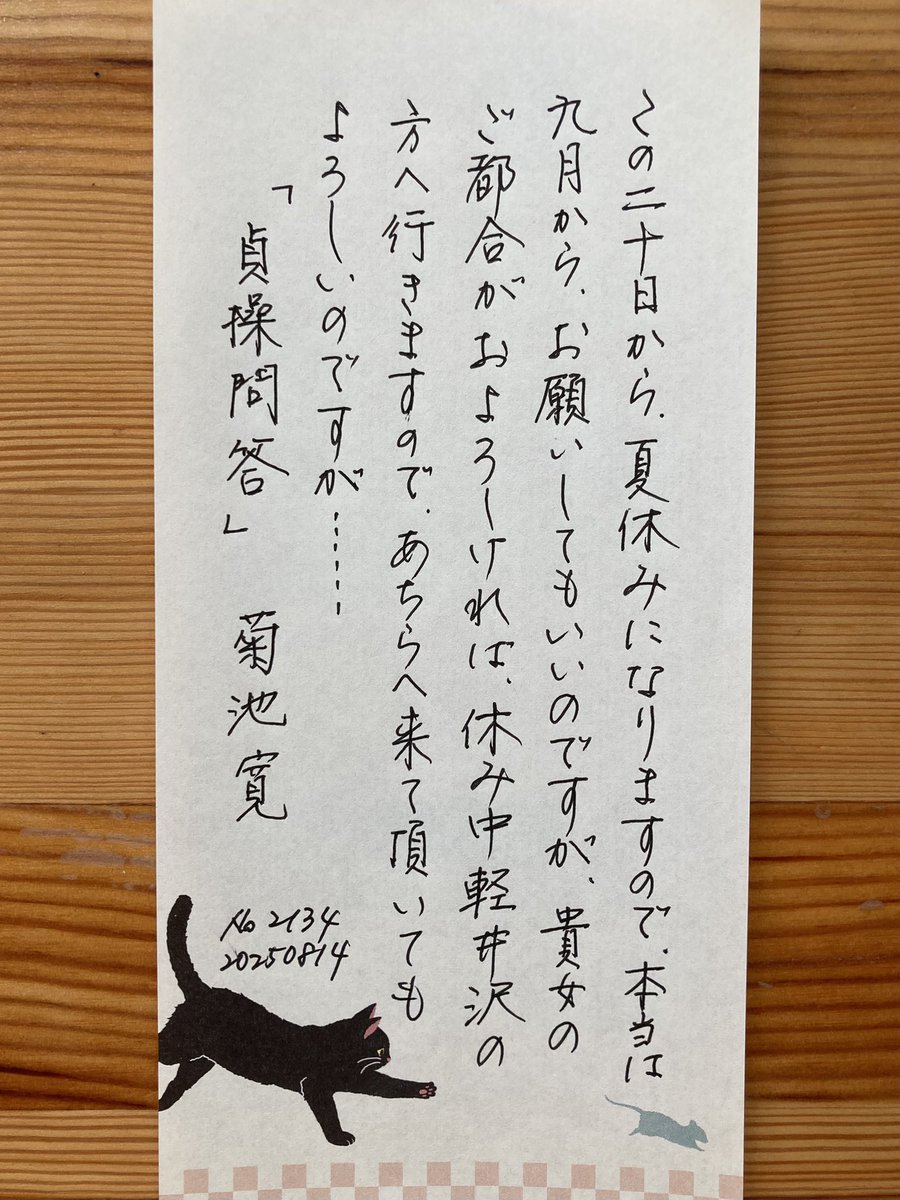 この二十日から、夏休みになりますので、本当は
九月から、お願いしてもいいのですが、貴女の
ご都合がおよろしければ、休み中軽井沢の
方へ行きますので、あちらへ来て頂いても
よろしいのですが……
「貞操問答」 菊池寛
No 2134
20250814